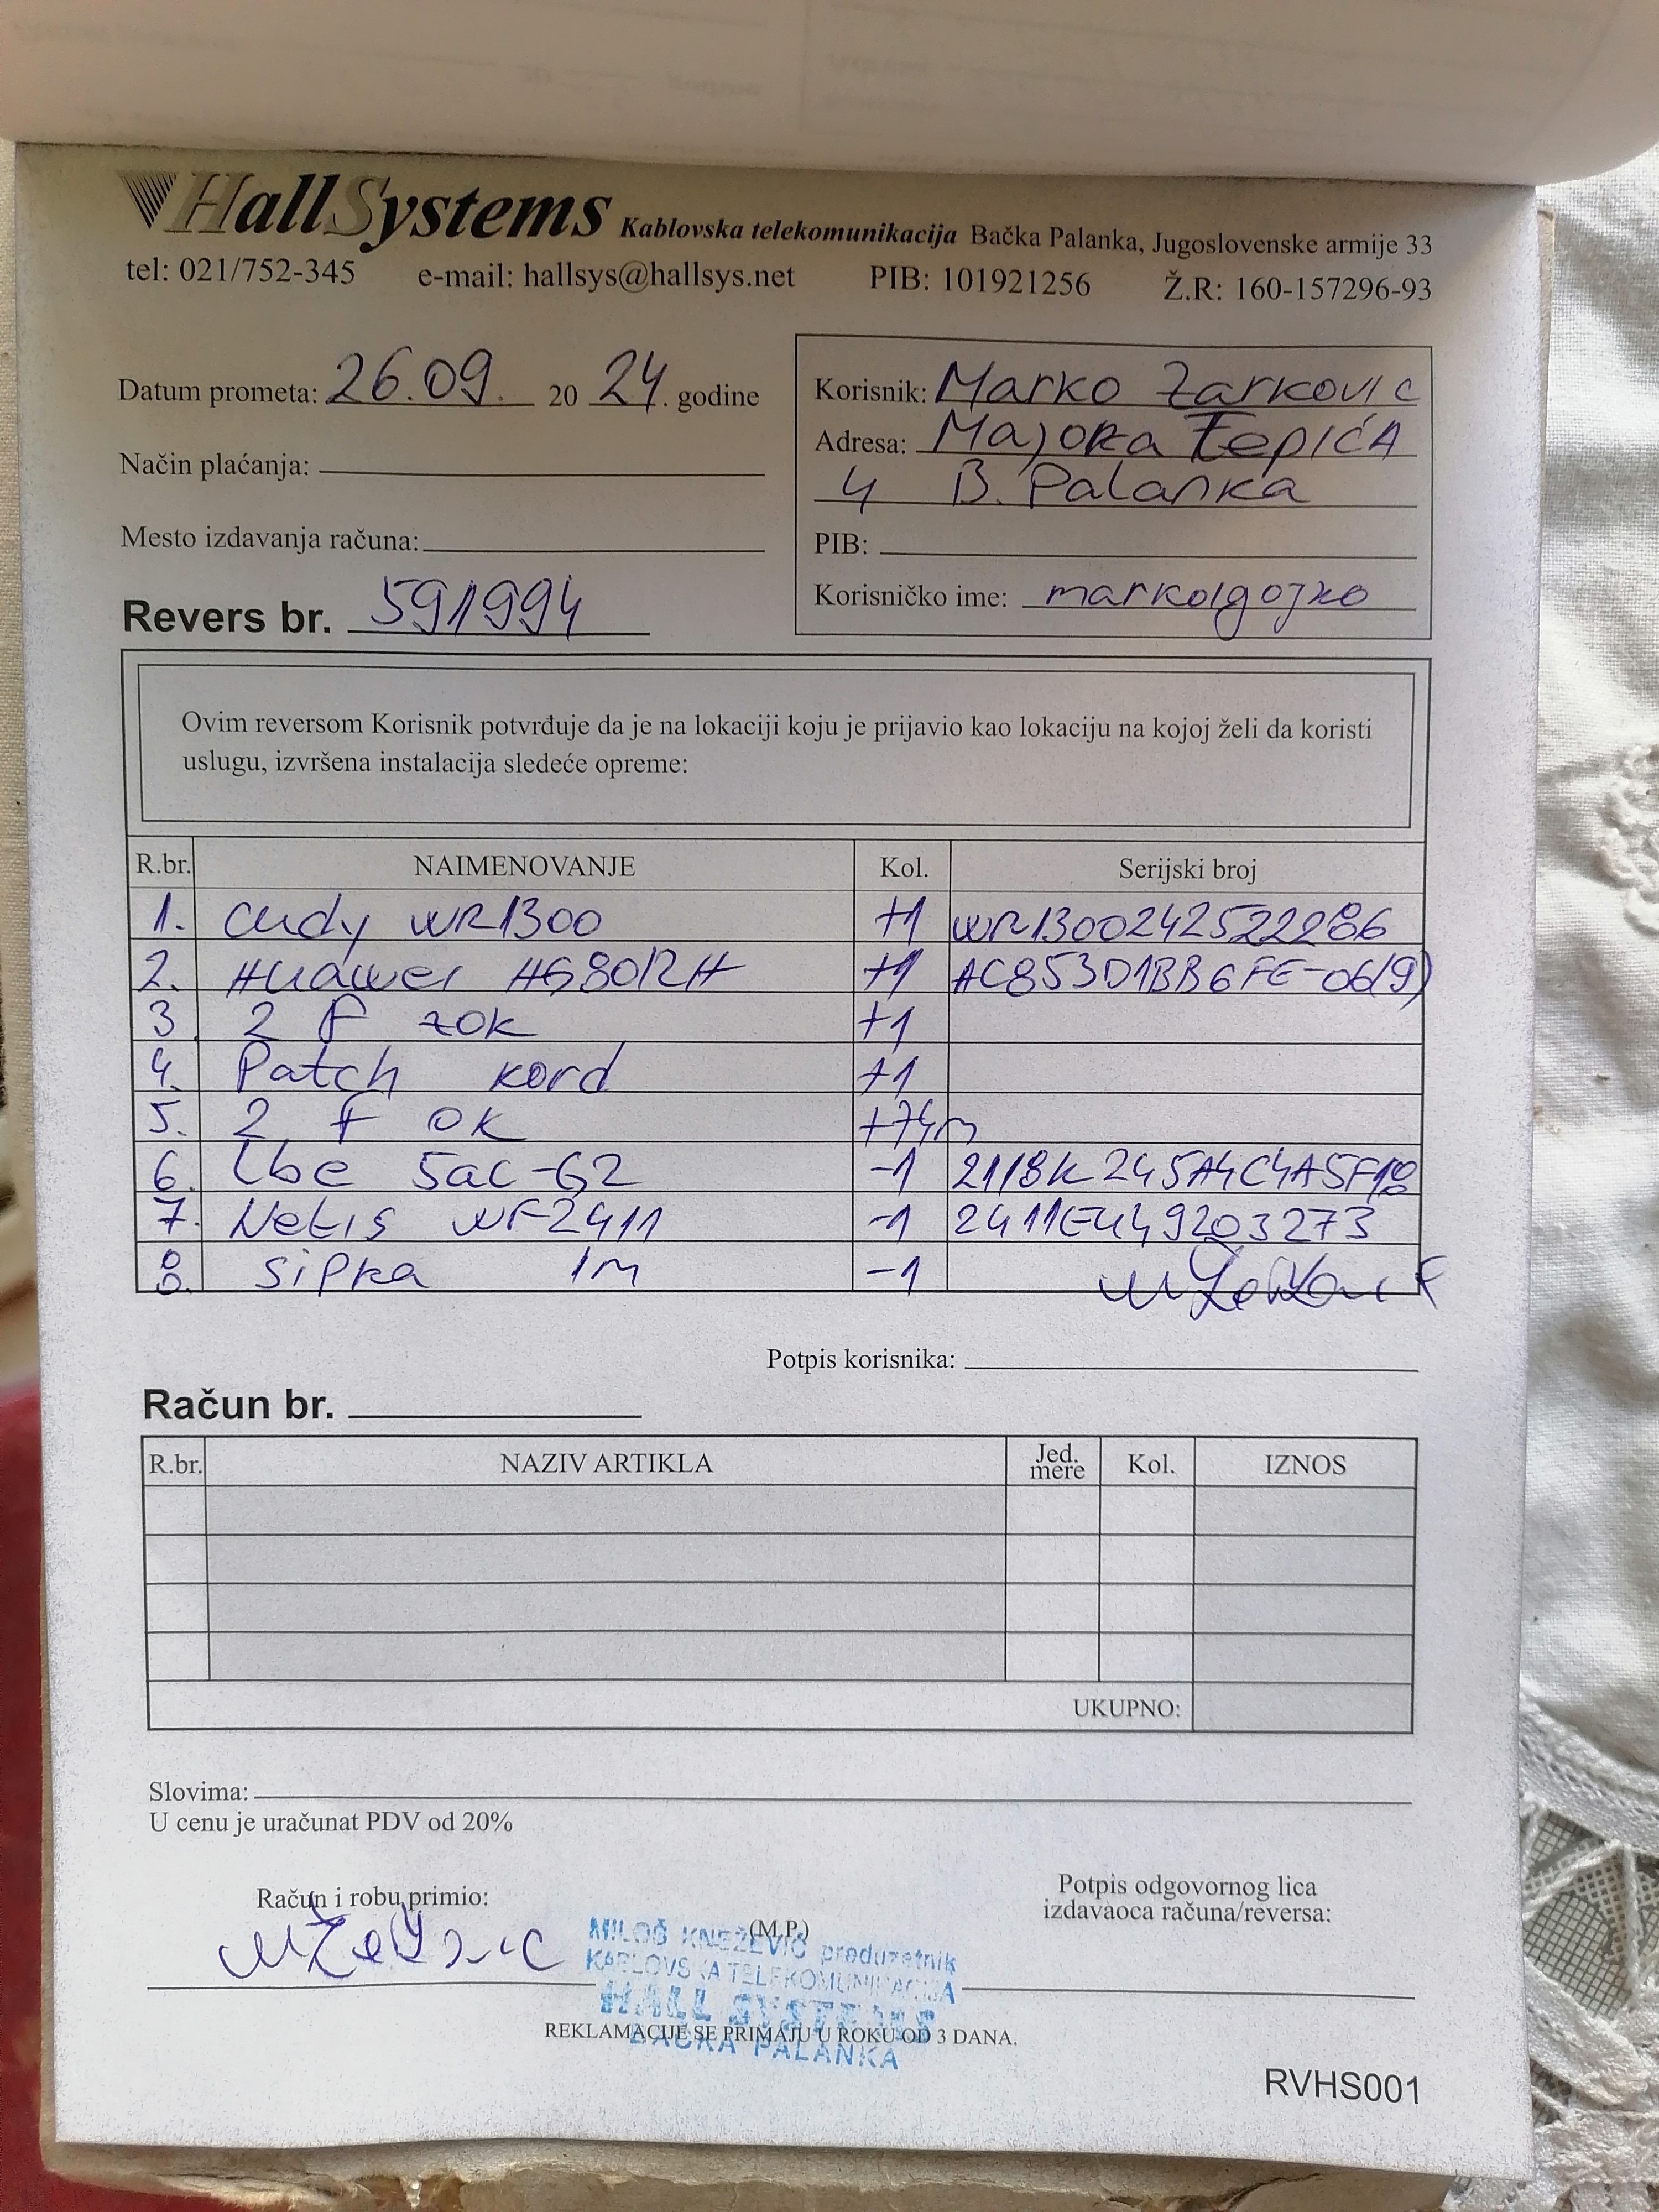 HallSystems Kablovska telekomunikacija Bačka Palanka, Jugoslovenske armije 33
tel: 021/752-345 e-mail: hallsys@hallsys.net PIB: 101921256 Ž.R: 160-157296-93
Datum prometa: 26.09. 20 24. godine
Način plaćanja:
Mesto izdavanja računa:
Revers br. 591994
Korisnik: Marko Zarkovic
Adresa: Majora Tepića
4 B. Palanka
PIB:
Korisničko ime: markolgojko
Ovim reversom Korisnik potvrđuje da je na lokaciji koju je prijavio kao lokaciju na kojoj želi da koristi
uslugu, izvršena instalacija sledeće opreme:
R.br. NAIMENOVANJE Kol. Serijski broj
1. Cudy WR1300 +1 WR13002425222886
2. Huawei HG8012H +1 AC853D1BB6FE-06(9)
3. 2 f zok +1
4. Patch kord +1
5. 2 f OK +74m
6. Lbe 5ac-G2 -1 2118K245A4C4A5F18
7. Netis WF2411 -1 2411EU49203273
8. Sipka 1m -1
Potpis korisnika:
Račun br.
R.br. NAZIV ARTIKLA Jed. mere Kol. IZNOS
UKUPNO:
Slovima:
U cenu je uračunat PDV od 20%
Račun i robu primio:
(M.P.)
Potpis odgovornog lica
izdavaoca računa/reversa:
MILOŠ KNEŽEVIĆ preduzetnik
KABLOVSKA TELEKOMUNIKACIJA
HALL SYSTEMS
BAČKA PALANKA
REKLAMACIJE SE PRIMAJU U ROKU OD 3 DANA.
RVHS001